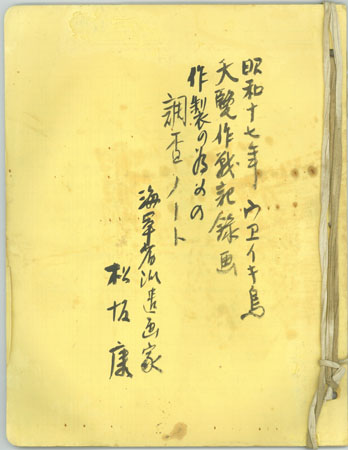 昭和十七年 ウエイキ島
天覧作戦記録画
作製の為めの
調査ノート
海軍省派遣画家
松坂康